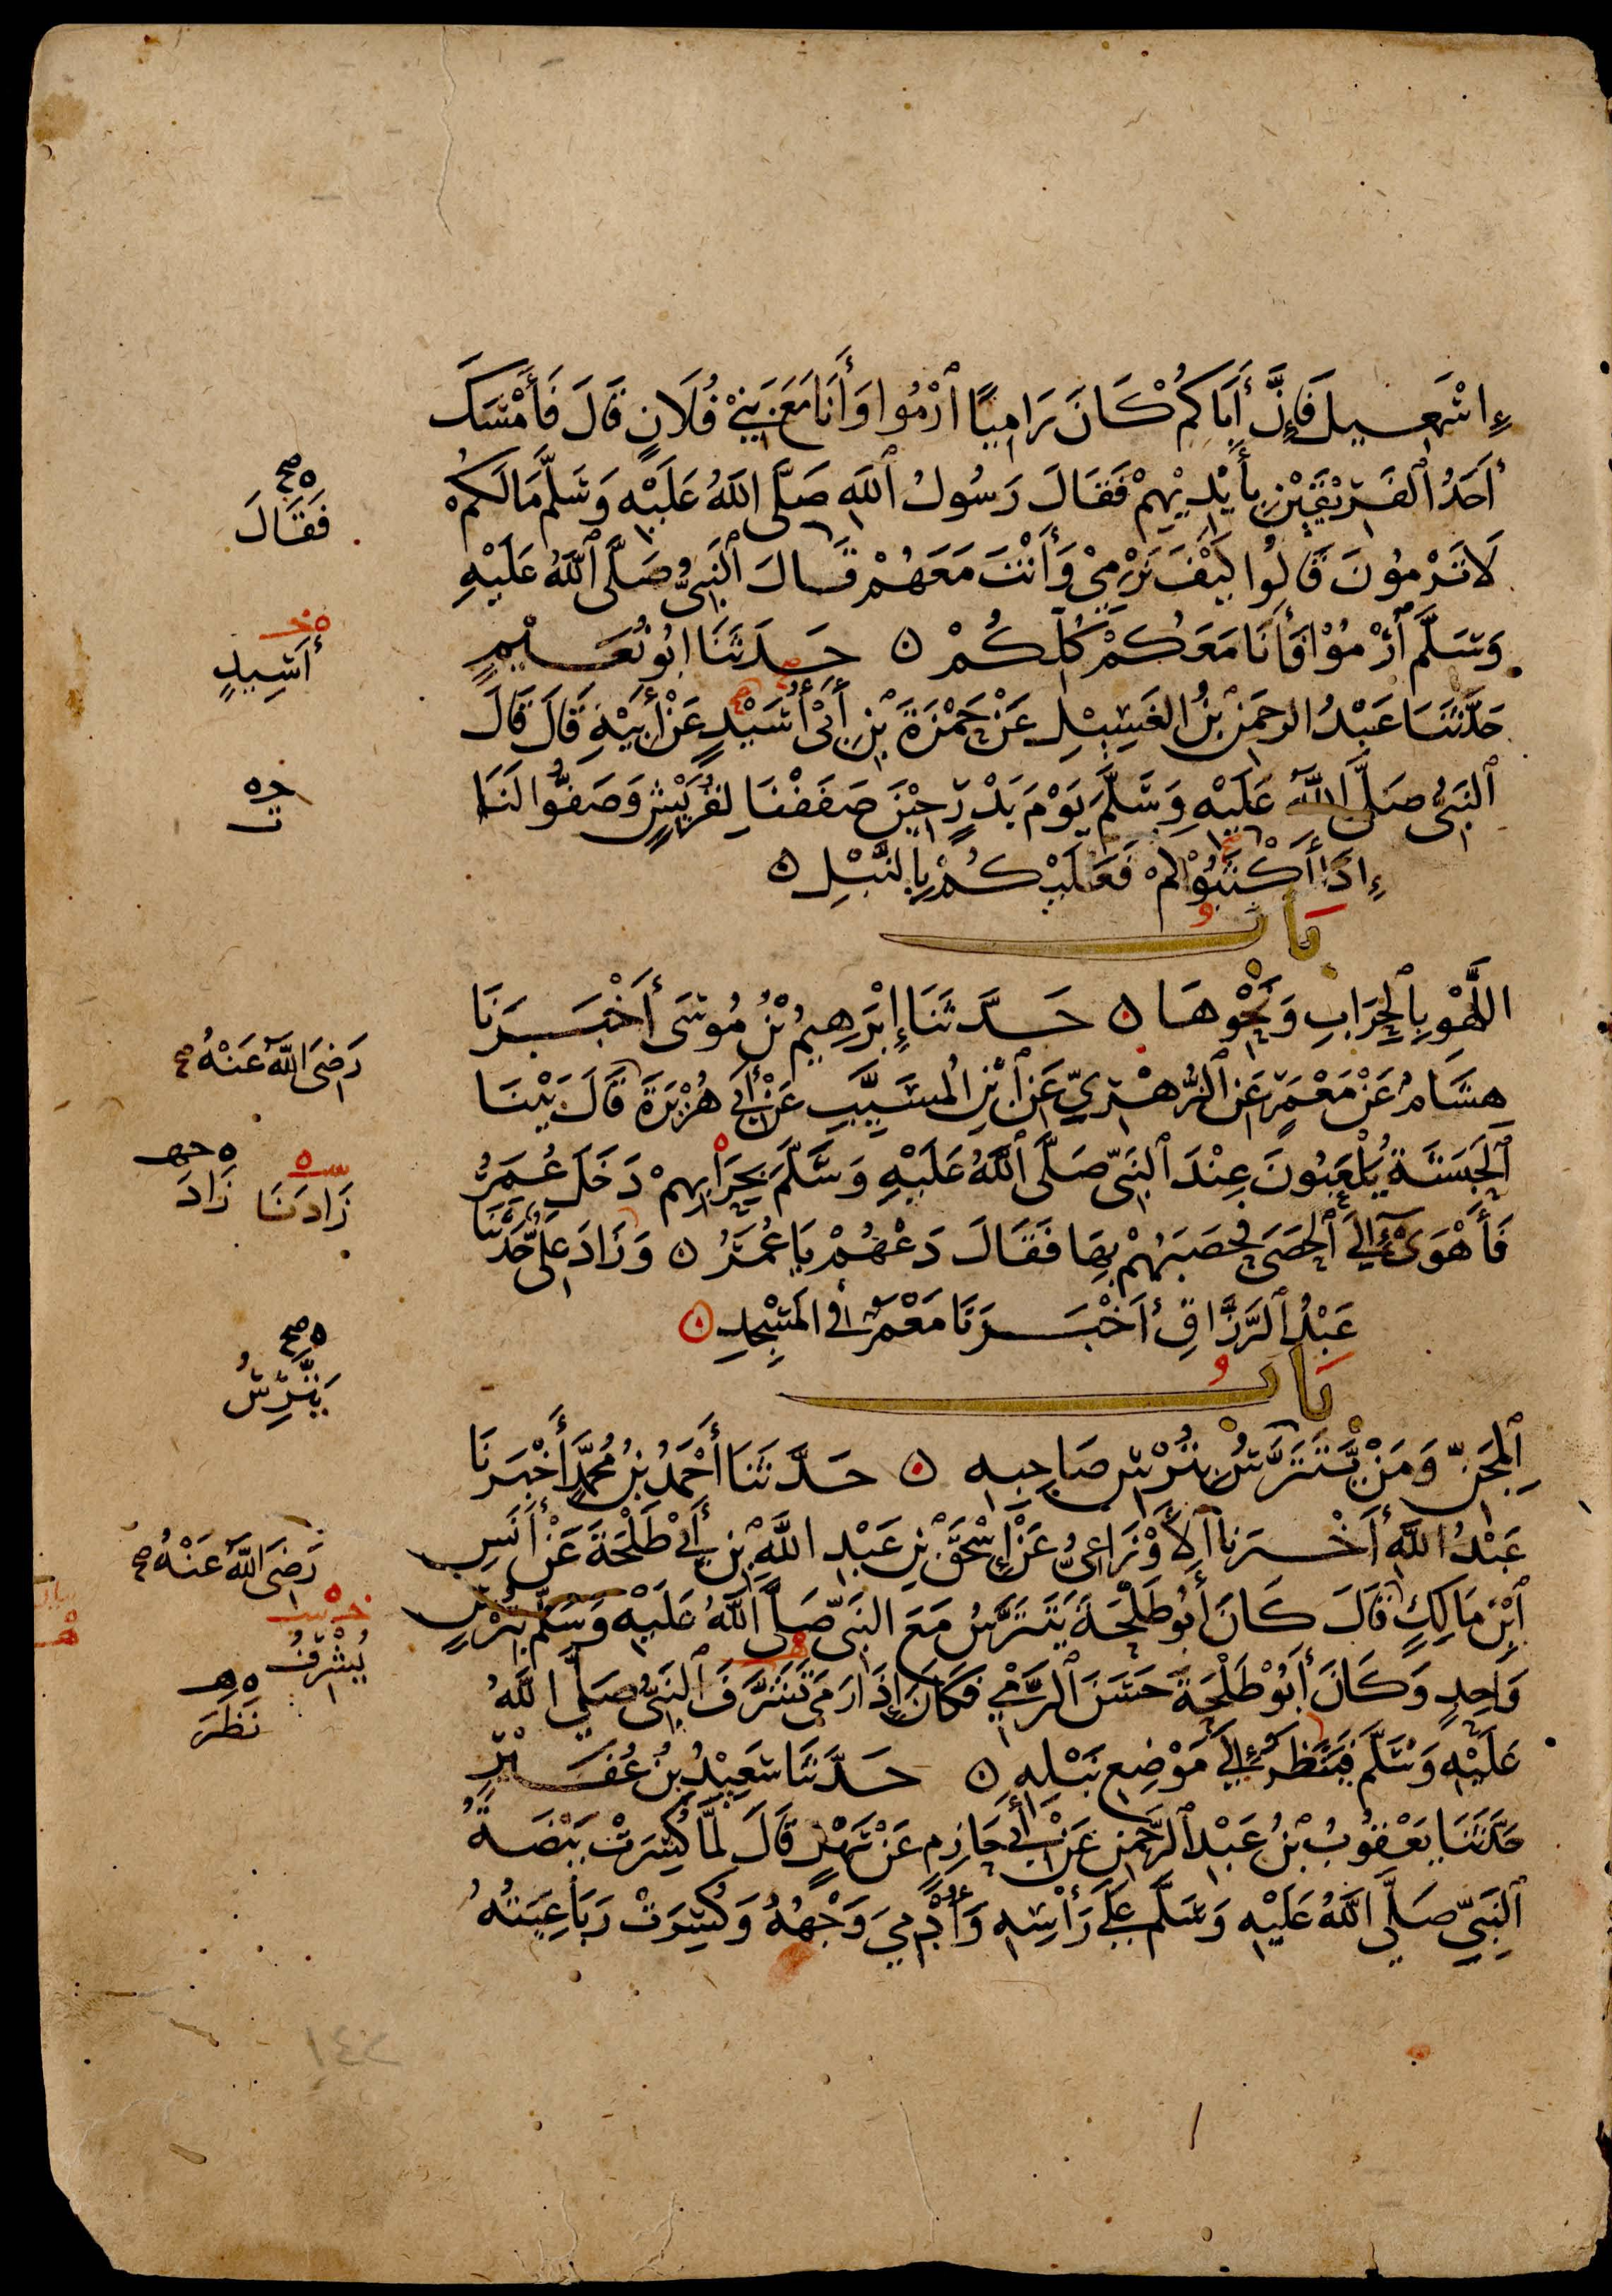 إِسْمَعِيلَ فَإِنَّ أَبَاكُمْ كَانَ رَامِيًا ٱرْمُوا وَأَنَا مَعَ بَنِيْ فُلَانٍ قَالَ فَأَمْسَكَ
أَحَدُ ٱلْفَرِيْقَيْنِ بِأَيْدِيْهِمْ فَقَالَ رَسُولُ ٱللَّهِ صَلَّى اللَّهُ عَلَيْهِ وَسَلَّمَ مَا لَكُمْ
فَقَالَ
لَا تَرْمُونَ قَالُوا كَيْفَ نَرْمِيْ وَأَنْتَ مَعَهُمْ قَالَ ٱلنَّبِيُّ صَلَّى ٱللَّهُ عَلَيْهِ
وَسَلَّمَ ٱرْمُوْا فَأَنَا مَعَكُمْ كُلِّكُمْ ۝ حَدَّثَنَا ابُو نُعَيْمٍ
أَسِيدٍ
حَدَّثَنَا عَبْدُ الرحمَنِ بْنُ الغَسِيْلِ عَنْ حَمْزَةَ بْنِ أَبِيْ أُسَيْدٍ عَنْ أَبِيْهِ قَالَ قَالَ
ٱلنَّبِيُّ صَلَّى اللَّهُ عَلَيْهِ وَسَلَّمَ يَوْمَ بَدْرٍ حِيْنَ صَفَفْنَا لِقُرَيْشٍ وَصَفُّوا لَنَا
إِذَا أَكْثَبُوْكُمْ فَعَلَيْكُمْ بِالنَّبْلِ ۝
بَابُ
اللَّهْوِ بِٱلْحِرَابِ وَنَحْوِهَا ۝ حَدَّثَنَا إِبْرَهِيمُ بْنُ مُوسَى أَخْبَرَنَا
رَضِىَ اللَّهُ عَنْهُ صح
هِشَامٌ عَنْ مَعْمَرٍ عَنِ ٱلزُّهْرِيِّ عَنِ ٱبْنِ الْمُسَيَّبِ عَنْ أَبِي هُرَيْرَةَ قَالَ بَيْنَا
ٱلْحَبَشَةُ يَلْعَبُونَ عِنْدَ ٱلنَّبِيِّ صَلَّى ٱللَّهُ عَلَيْهِ وَسَلَّمَ بِحِرَابِهِمْ دَخَلَ عُمَرُ
زَادَنَا
زَادَ
فَأَهْوَىْ إِلَى ٱلْحَصَى فَحَصَبَهُمْ بِهَا فَقَالَ دَعْهُمْ يَا عُمَرُ ۝ وَزَادَ عَلِيٌّ حَدَّثَنَا
عَبْدُ ٱلرَّزَّاقِ أَخْبَرَنَا مَعْمَرٌ فِي الْمَسْجِدِ ۝
بَابُ
يَتَّرِسُ
ٱلْمِجَنِّ وَمَنْ يَتَتَرَّسُ بِتُرْسِ صَاحِبِهِ ۝ حَدَّثَنَا أَحْمَدُ بْنُ مُحَمَّدٍ أَخْبَرَنَا
عَبْدُ اللَّهِ أَخْبَرَنا ٱلْأَوْزَاعِيُّ عَنْ إِسْحَقَ بْنِ عَبْدِ اللَّهِ بْنِ أَبِيْ طَلْحَةَ عَنْ أَنَسِ
رَضِىَ اللَّهُ عَنْهُ صح
ٱبْنِ مَالِكٍ قَالَ كَانَ أَبُو طَلْحَةَ يَتَتَرَّسُ مَعَ النَّبِيِّ صَلَّى اللَّهُ عَلَيْهِ وَسَلَّمَ بِتُرْسٍ
يُشْرِفُ
وَاحِدٍ وَكَانَ أَبُوْ طَلْحَةَ حَسَنَ ٱلرَّمْيِ فَكَانَ إِذَا رَمَى تَشَرَّفَ ٱلنَّبِيُّ صَلَّى اللَّهُ
نَظَرَ
عَلَيْهِ وَسَلَّمَ فَيَنْظُرُ إِلَى مَوْضِعِ نَبْلِهِ ۝ حَدَّثَنَا سَعِيْدُ بْنُ عُفَيْرٍ
حَدَّثَنَا يَعْقُوبُ بْنُ عَبْدِ ٱلرَّحْمَنِ عَنْ أَبِي حَازِمٍ عَنْ سَهْلٍ قَالَ لَمَّا كُسِرَتْ بَيْضَةُ
ٱلنَّبِيِّ صَلَّى اللَّهُ عَلَيْهِ وَسَلَّمَ عَلَى رَأْسِهِ وَأُدْمِيَ وَجْهُهُ وَكُسِرَتْ رَبَاعِيَتُهُ